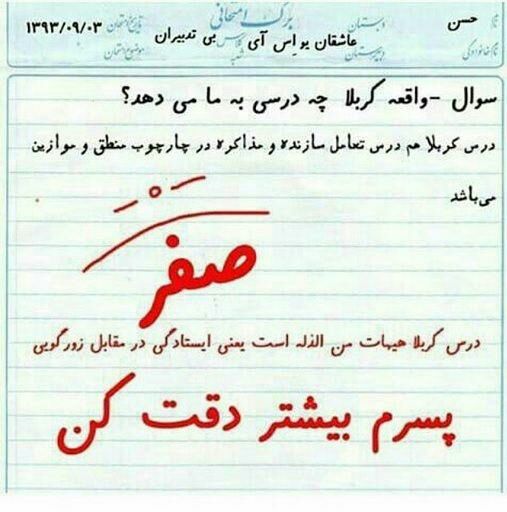 برگ امتحانی
نام حسن دبستان تاریخ امتحان ۱۳۹۳/۰۹/۰۳
نام خانوادگی دبیرستان عاشقان یو اس آی کلاس شعبه بی تدبیران موضوع امتحان
سوال -واقعه کربلا چه درسی به ما می دهد؟
درس کربلا هم درس تعامل سازنده و مذاکره در چارچوب منطق و موازین
می‌باشد
صفر
درس کربلا هیهات من الذله است یعنی ایستادگی در مقابل زورگویی
پسرم بیشتر دقت کن